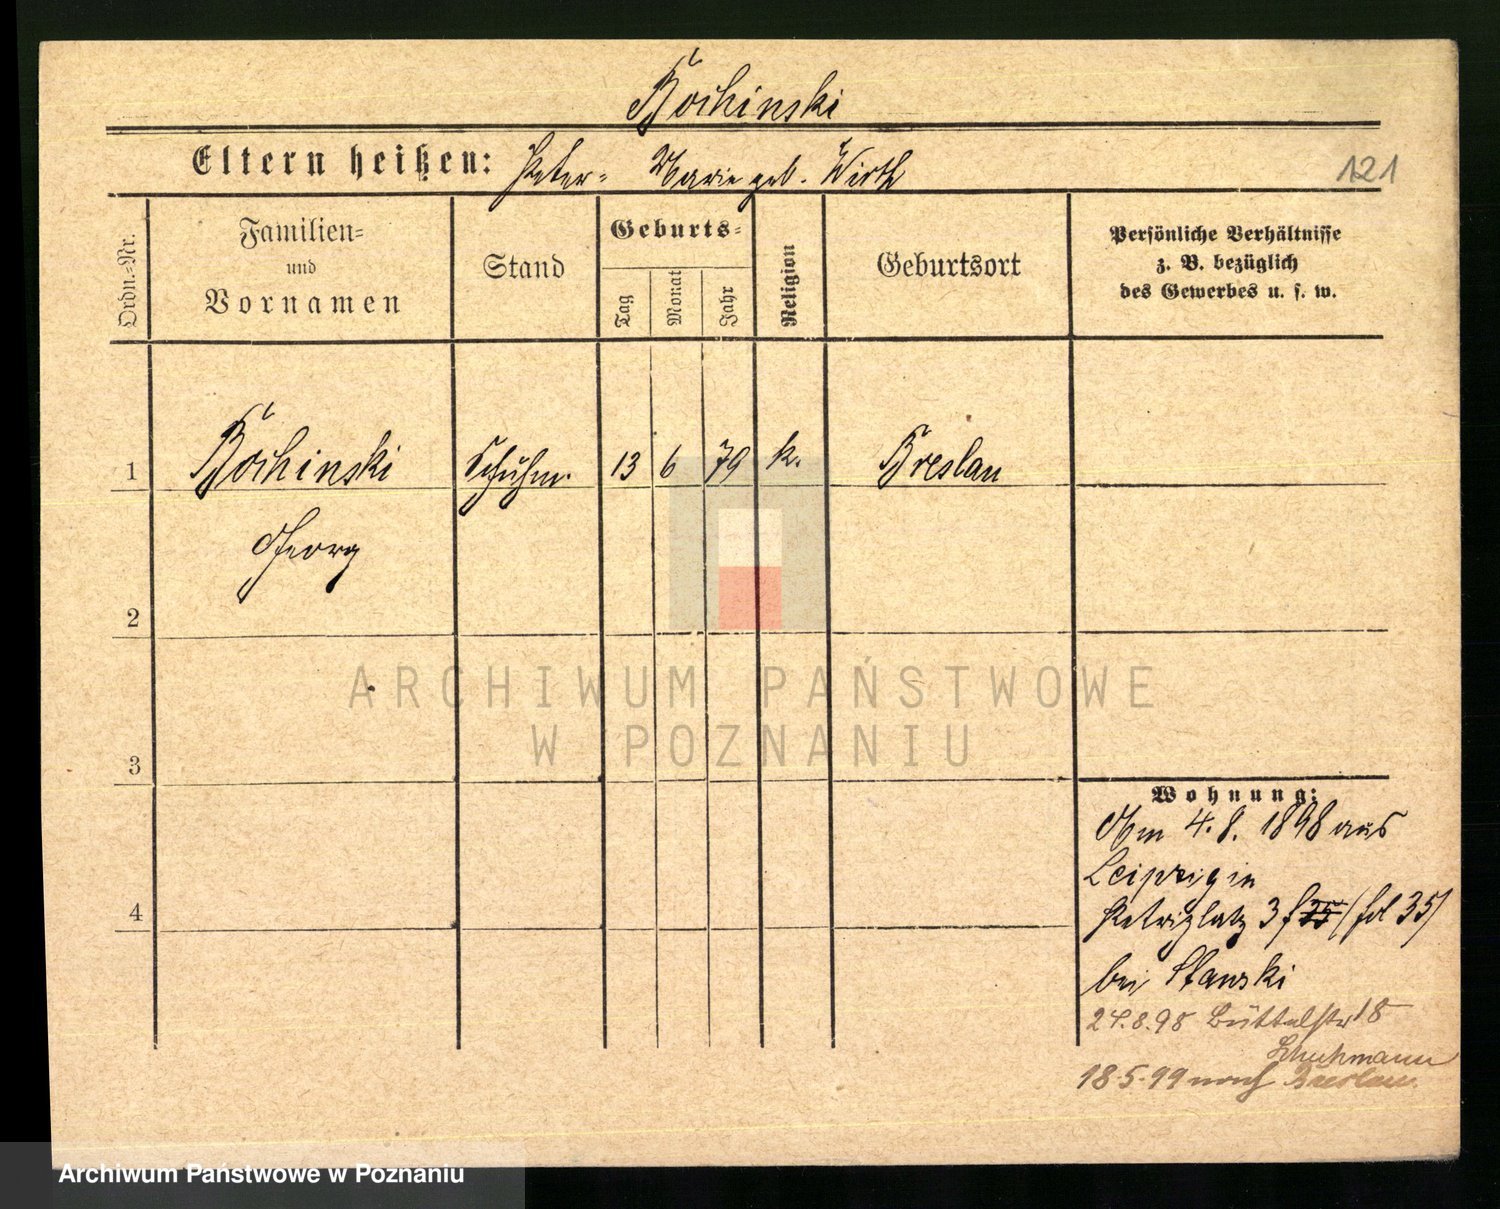 Bochinski
Eltern heißen: Peter- Marie geb. Wirth
121
Ordn.-Nr.
Familien-
und
Vornamen
Stand
Geburts-
Tag
Monat
Jahr
Religion
Geburtsort
Persönliche Verhältnisse
z. B. bezüglich
des Gewerbes u. s. w.
1 Bochinski Schuhm. 13 6 79 k. Breslau
Georg
2
ARCHIWUM PAŃSTWOWE
W POZNANIU
3
Wohnung:
Am 4.8. 1898 aus
Leipzig in
4
Petriplatz 3 35)
bei Stanski
24.8.98 Büttelstr 18
Schuhmann
18.5.99 nach Breslau.
Archiwum Państwowe w Poznaniu